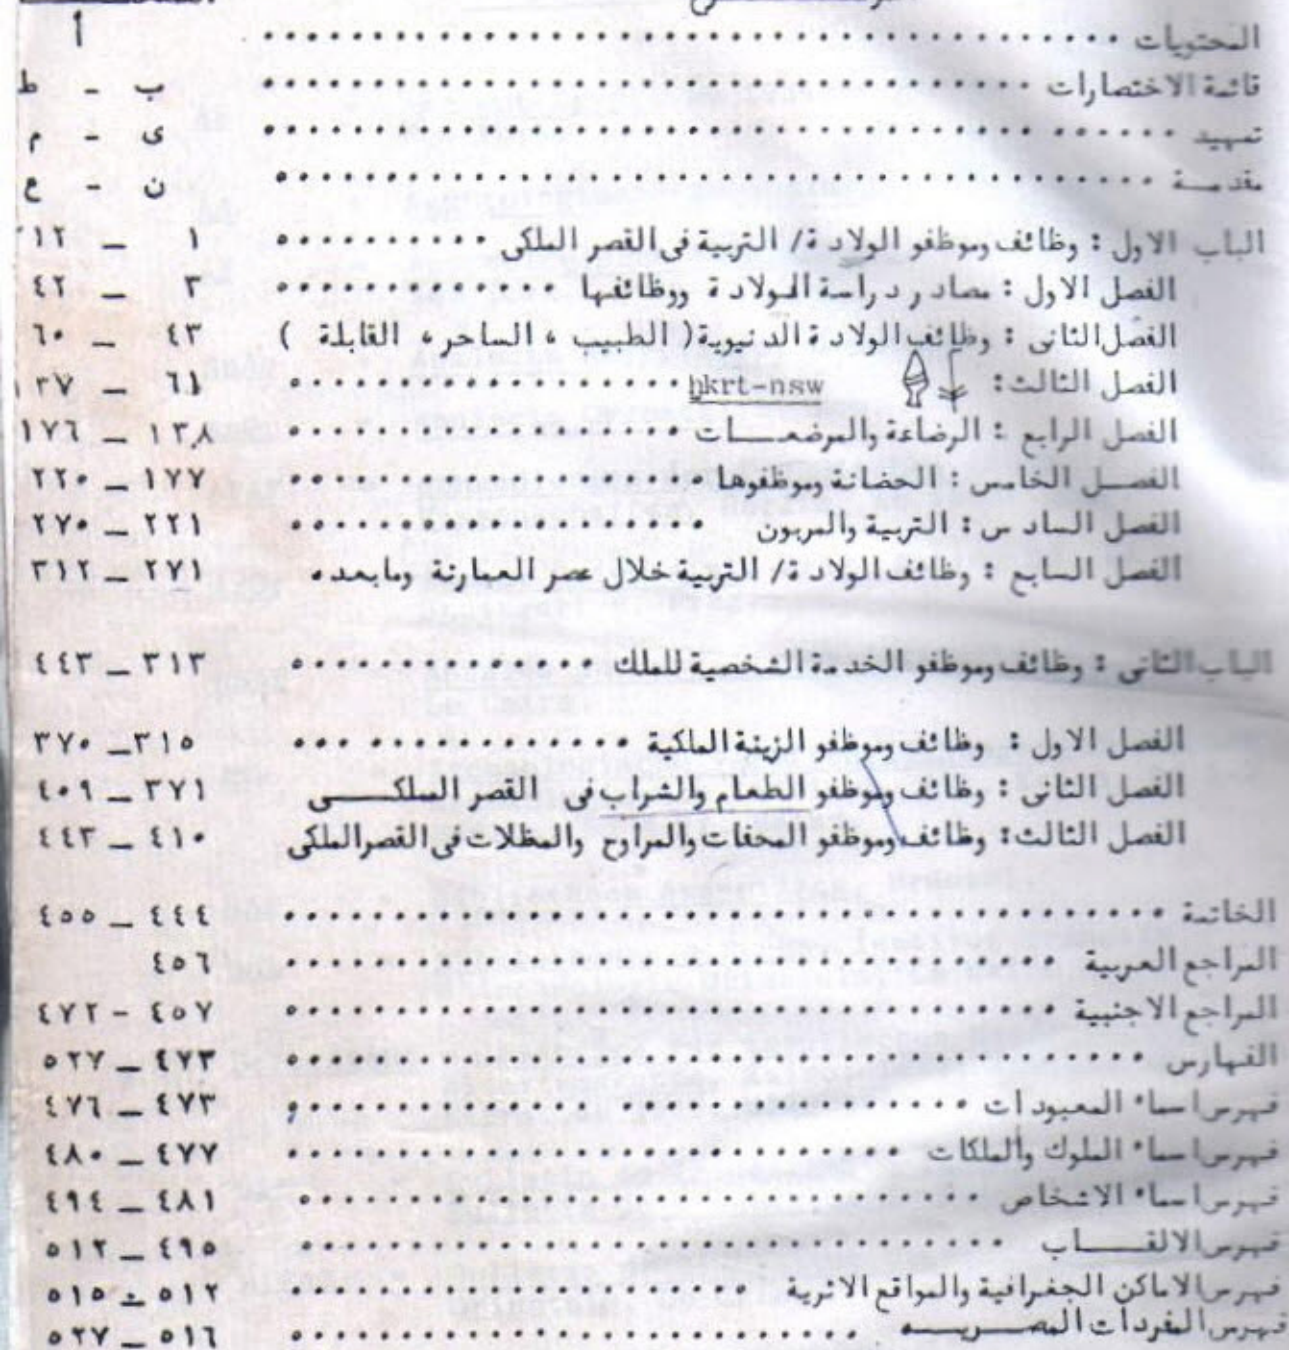 أ
المحتويات ........................................
قائمة الاختصارات ........................................ ب - ط
تمهيد ........................................ ى - م
مقدمة ........................................ ن - ع
الباب الاول : وظائف وموظفو الولادة/ التربية فى القصر الملكى .......... ١ – ٣١٢
الفصل الاول : مصادر دراسة الولادة ووظائفها ............. ٣ – ٤٢
الفصل الثانى : وظائف الولادة الدنيوية ( الطبيب ، الساحر ، القابلة ) ٤٣ – ٦٠
الفصل الثالث: ẖkrt-nsw .................. ٦١ – ١٣٧
الفصل الرابع : الرضاعة والمرضعـــات .................. ١٣٨ – ١٧٦
الفصــل الخامس : الحضانة وموظفوها .................. ١٧٧ – ٢٢٠
الفصل السادس : التربية والمربون .................. ٢٢١ – ٢٧٠
الفصل السابع : وظائف الولادة/ التربية خلال عصر العمارنة ومابعده . ٢٧١ – ٣١٢
الباب الثانى : وظائف وموظفو الخدمة الشخصية للملك .............. ٣١٣ – ٤٤٣
الفصل الاول : وظائف وموظفو الزينة الملكية ............. ٣١٥ – ٣٧٠
الفصل الثانى : وظائف وموظفو الطعام والشراب فى القصر الملكـــى ٣٧١ – ٤٠٩
الفصل الثالث: وظائف وموظفو المحفات والمراوح والمظلات فى القصر الملكى ٤١٠ – ٤٤٣
الخاتمة ........................................ ٤٤٤ – ٤٥٥
المراجع العربية .................................. ٤٥٦
المراجع الاجنبية .................................. ٤٥٧ - ٤٧٢
الفهارس ...................................... ٤٧٣ – ٥٢٧
فهرس اسماء المعبودات .............................. ٤٧٣ – ٤٧٦
فهرس اسماء الملوك والملكات .......................... ٤٧٧ – ٤٨٠
فهرس اسماء الاشخاص .............................. ٤٨١ – ٤٩٤
فهرس الالقــــاب ................................ ٤٩٥ – ٥١٢
فهرس الاماكن الجغرافية والمواقع الاثرية .................... ٥١٢ – ٥١٥
فهرس المفردات المصريـــه .......................... ٥١٦ – ٥٢٧